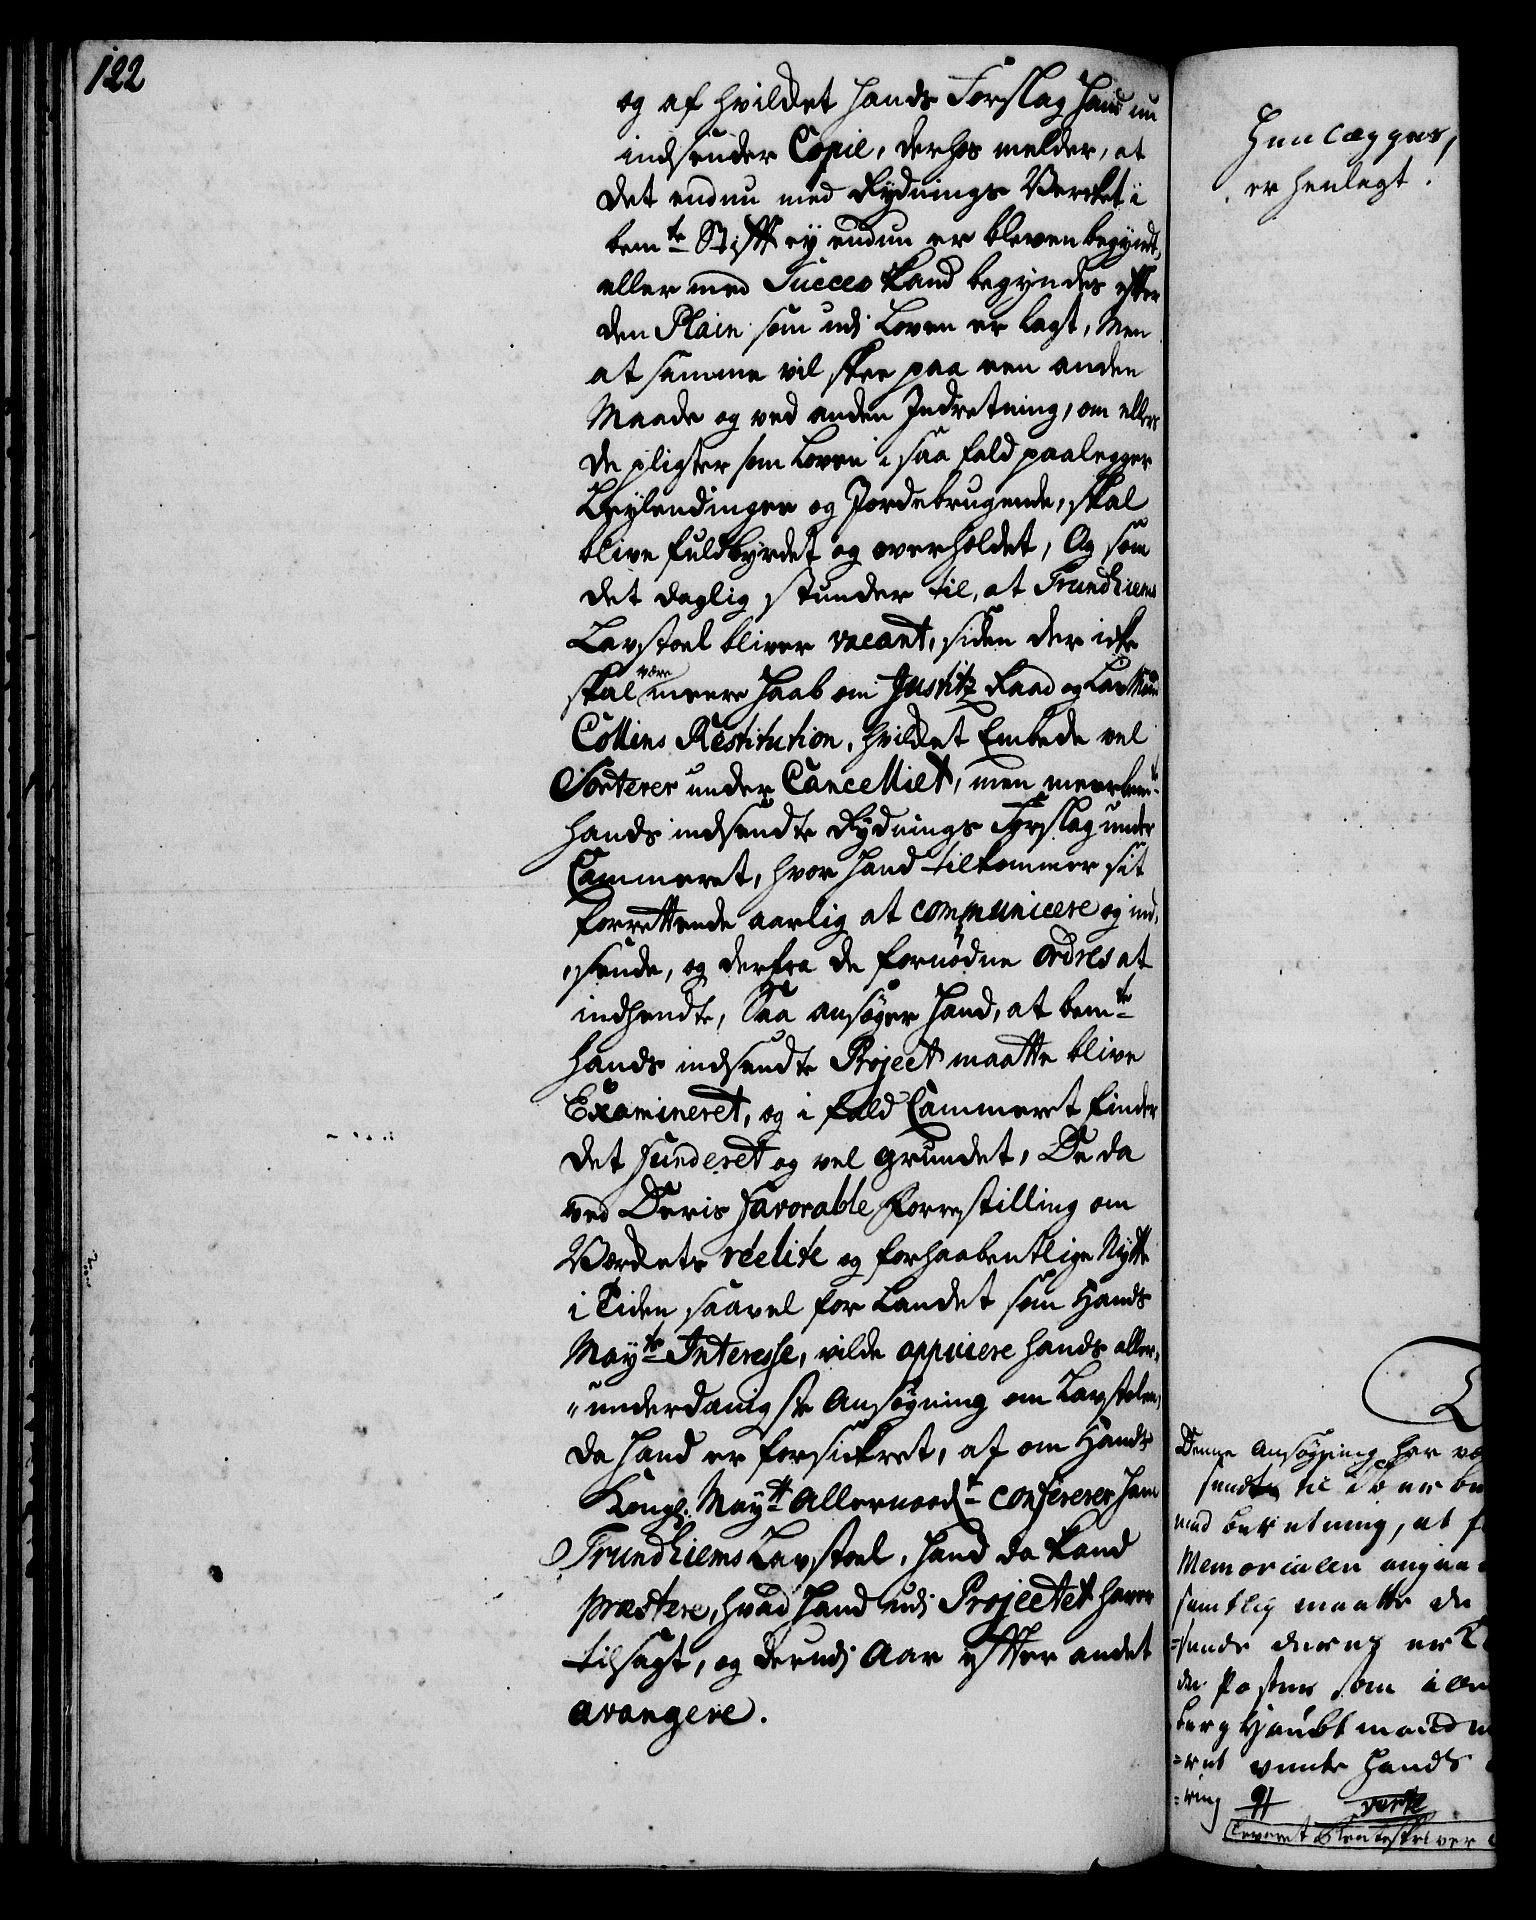 122
og af hvilket hands Forslag hand nu
indsender Copie, derhos melder, at
det endnu med Rydnings Verket i
bem.te Stifft ey endnu er bleven begyndt,
eller med Succes kand begyndes effter
den Plain som udi Loven er lagt, Men
at samme vil skee paa een anden
Maade og ved anden Indretning, om ellers
de pligter som Loven i saa fald paalegger
Leylendinger og Jordebrugende, skal
blive fuldbyrdet og overholdet, Og som
det daglig stunder til, at Trundhiems
Lavstoel bliver vacant, siden der icke
skal være meere Haab om Justitz Raad og LavMand
Collins Restitution, hvilket Embede vel
Sorterer under Cancelliet, men meerbem.te
hands indsendte Rydnings Forslag under
Cammeret, hvor hand tilkommer sit
forrettende aarlig at communicere og ind-
sende, og derfra de fornødne ordres at
indhendte, Saa ansøger hand, at bem.te
hands indsendte Project maatte blive
Examineret, og i fald Cammeret finder
det funderet og vel grundet, De da
ved Deris favorable forrestilling om
Værkets reelite og forhaabentlige Nytte
i Tiden saavel for Landet som Hands
May.ts Interesse, vilde appuiere hands aller-
underdanigste Ansøgning om Lavstolen,
da hand er forsickret, at om Hands
Kongl. May.tt Allernaad.t confererer ham
Trundhiems Lavstoel, hand da kand
præstere, hvad hand udi Projectet haver
tilsagt, og derudi Aar effter andet
avangere.
Henlægges,
er henlagt.
Denne Ansøgning har væ
sendte til
med beretning, at
Memorialen angaa
samtlig maatte de
=sende
de Poster som
berg
=ret hands
=ring
verte